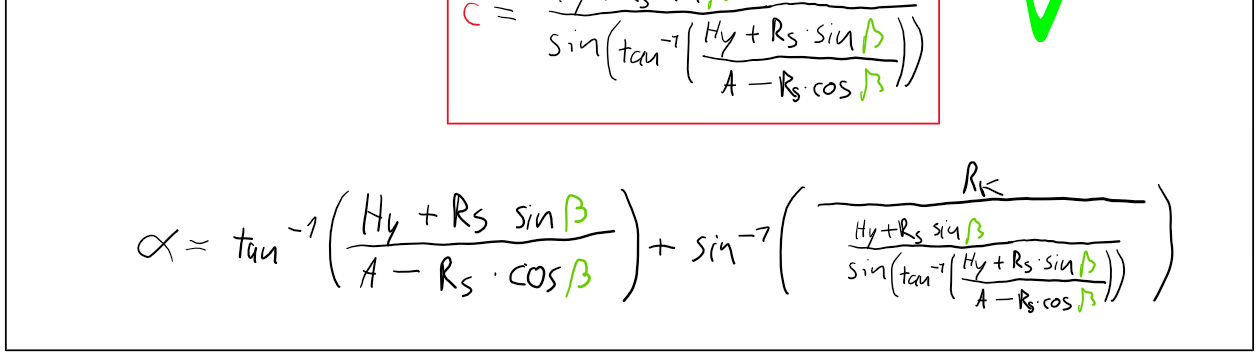 c = (Hy + Rs · sin β) / (sin(tan⁻¹((Hy + Rs · sin β) / (A − Rs · cos β))))
α = tan⁻¹((Hy + Rs sin β) / (A − Rs · cos β)) + sin⁻¹(RK / ((Hy + Rs sin β) / (sin(tan⁻¹((Hy + Rs · sin β) / (A − Rs · cos β))))))